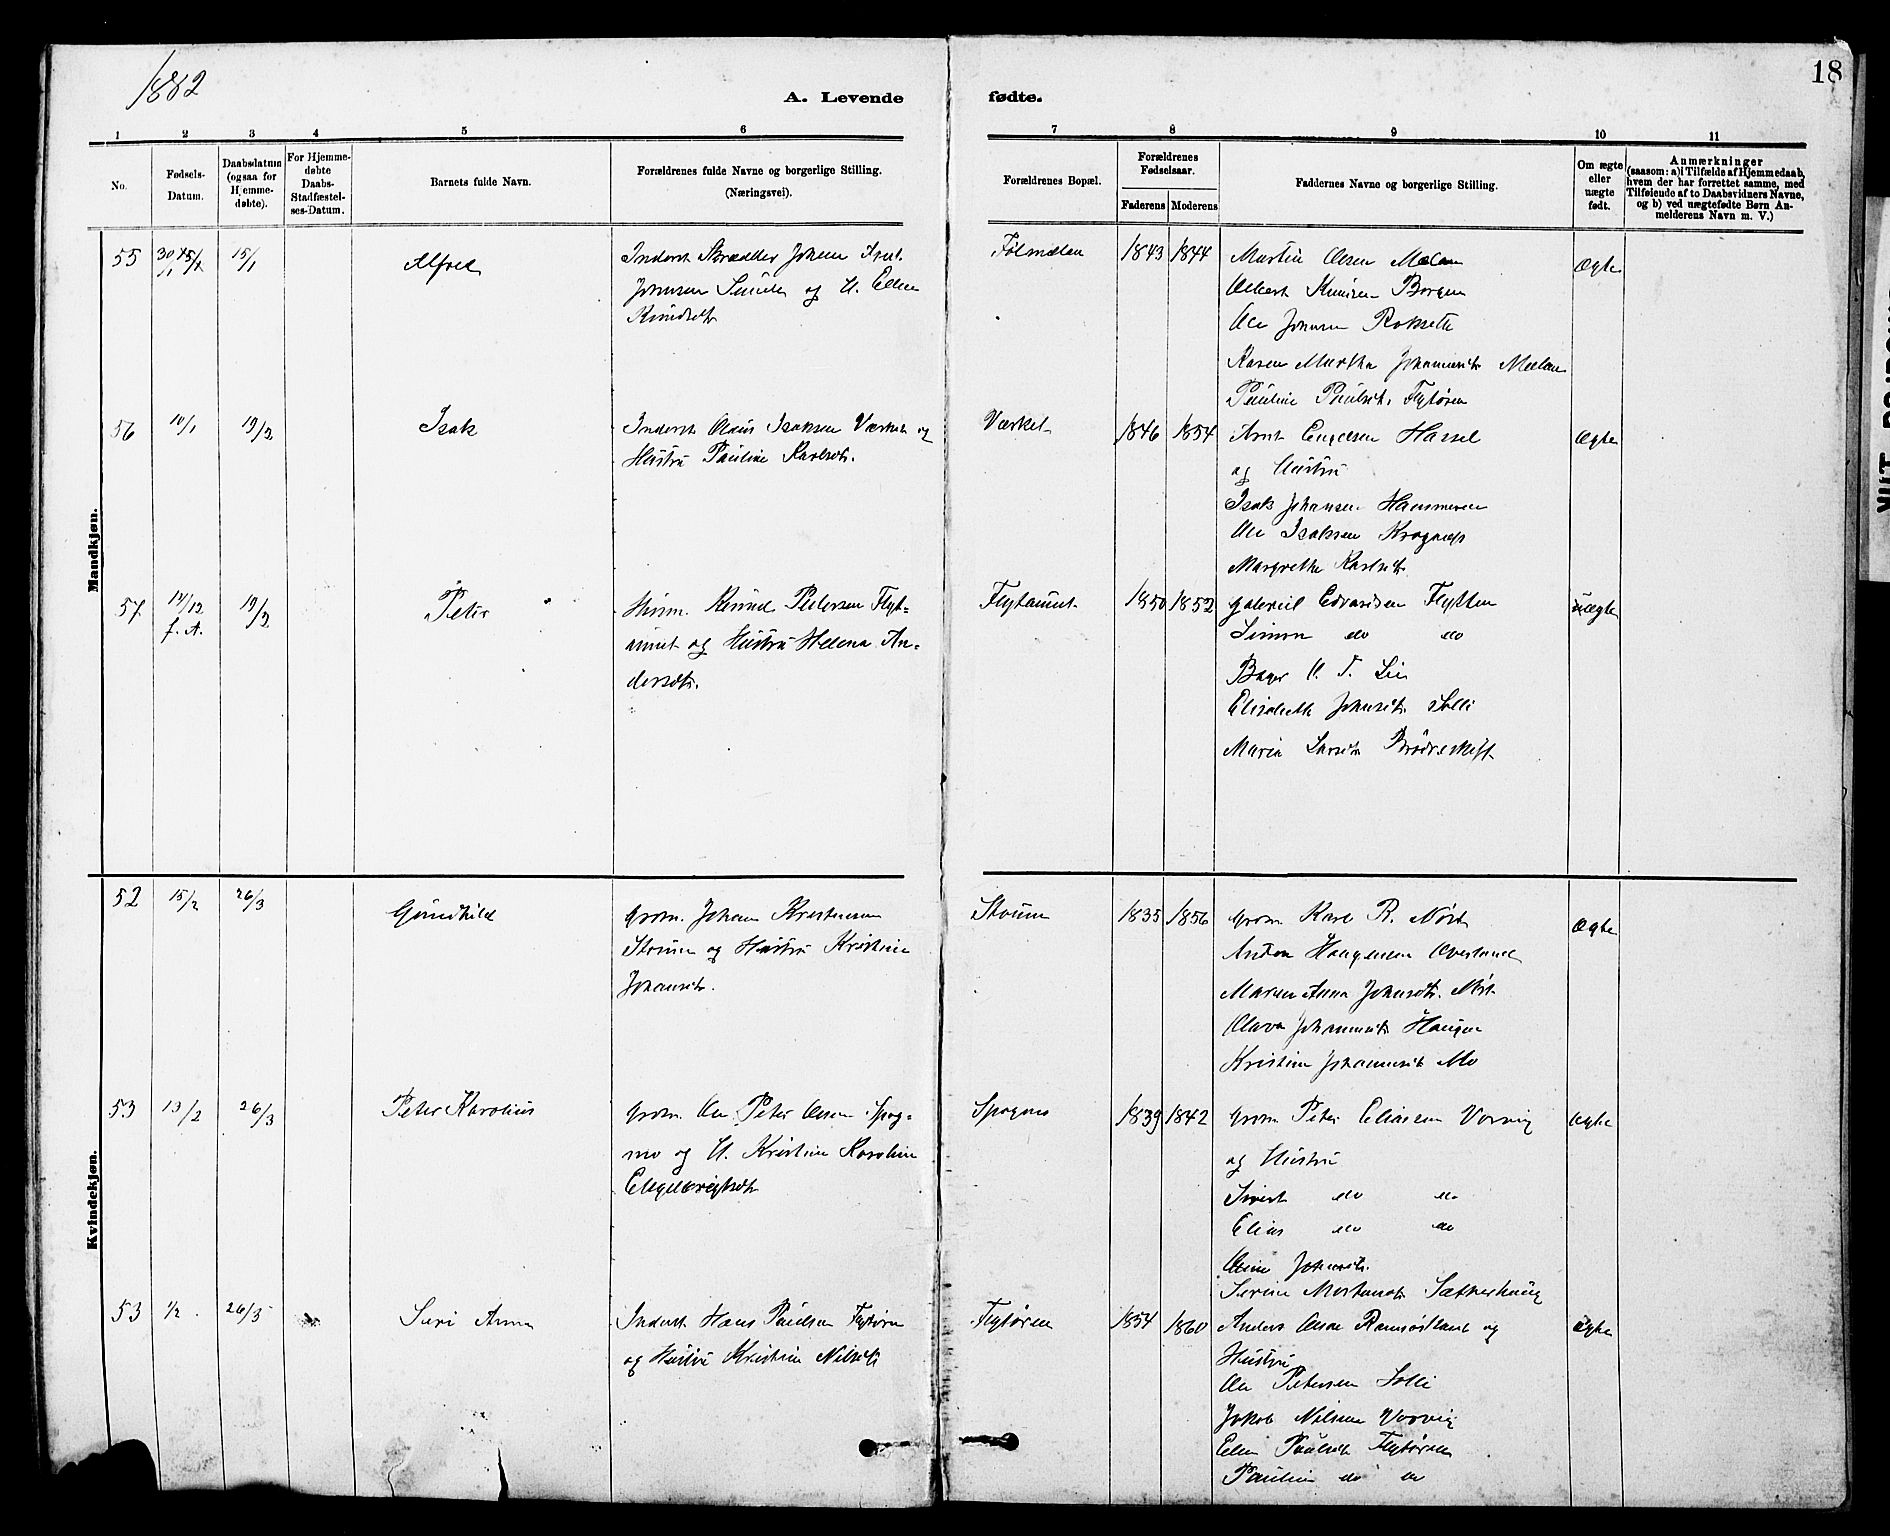 1882
A. Levende fødte.
18
1 2 3 4 5 6 7 8 9 10 11
No.
Fødsels-Datum.
Daabsdatum (ogsaa for Hjemme-døbte).
For Hjemme-døbte Daabs-Stadfæstel-ses-Datum.
Barnets fulde Navn.
Forældrenes fulde Navne og borgerlige Stilling. (Næringsvei).
Forældrenes Bopæl.
Forældrenes Fødselsaar.
Faderens Moderens
Faddernes Navne og borgerlige Stilling.
Om ægte eller uægte født.
Anmærkninger
(saasom: a) i Tilfælde af Hjemmedaab,
hvem der har forrettet samme, med
Tilføiende af to Daabsvidners Navne,
og b) ved uægtefødte Børn An-
melderens Navn m. V.)
Mandkjøn.
55 15/1 Alfred
Inderst Skrædder Johan
Johnsen og H. Ellen
Knudsdtr
Følmælen 1843 1844
Martin Olsen Mælen
Albert Knudsen Borgen
Ole Johnsen Roksette
Karen Martha Johannesdtr Mælen
Pauline Paulsdtr Flytøren
Ægte
56 10/1 19/2 Isak
Inderst Claus Isaksen Værket og
Hustru Pauline Karlsdtr.
Værket 1846 1854
Arnt Engelsen Hassel
og Hustru
Isak Johansen Hammeren
Ole Isaksen Kragnæs
Margrethe Karlsdtr
Ægte
57 14/12 f. A. 19/2 Peter
Husm. Knud Pedersen Flyt-
amnet og Hustru Helena An-
dersdtr.
Flytamnet 1850 1852
Gabriel Edvardsen Flytten
Simon do do
O. T. Lie
Elisabeth Johnsdtr Solli
Maria Larsdtr Brødreskift
Ægte
Kvindekjøn.
52 15/2 26/3 Gundhild
Grdm. Johan Kristensen
Stouen og Hustru Kristine
Johansdtr.
Stouen 1835 1856
Grdm. Karl R. Nøst
Anton Haugensen Overland
Maren Anna Johnsdtr. Nøst
Olava Johannesdtr Haugen
Kristine Johannesdtr Mo
Ægte
53 13/2 26/3 Peter Karolius
Grdm. Ole Peter Olsen Spog-
mo og H. Kristine Karoline
Engelbregtsdtr
Spogmo 1839 1842
Grdm Peter Eliassen Vorvig
og Hustru
Sivert do do
Elias do do
Oline Johnsdtr.
Serine Mortensdtr Sætterhaug
Ægte
53 1/2 26/3 Siri Anna
Inderst Hans Paulsen Flytøren
og Hustru Kristine Nilsdtr
Flytøren 1854 1860
Anders Olsen Ramsøsland og
Hustru
Ole Petersen Solli
Jakob Nilsen Vorvig
Ellen Paulsdtr Flytøren
Pauline do do
Ægte